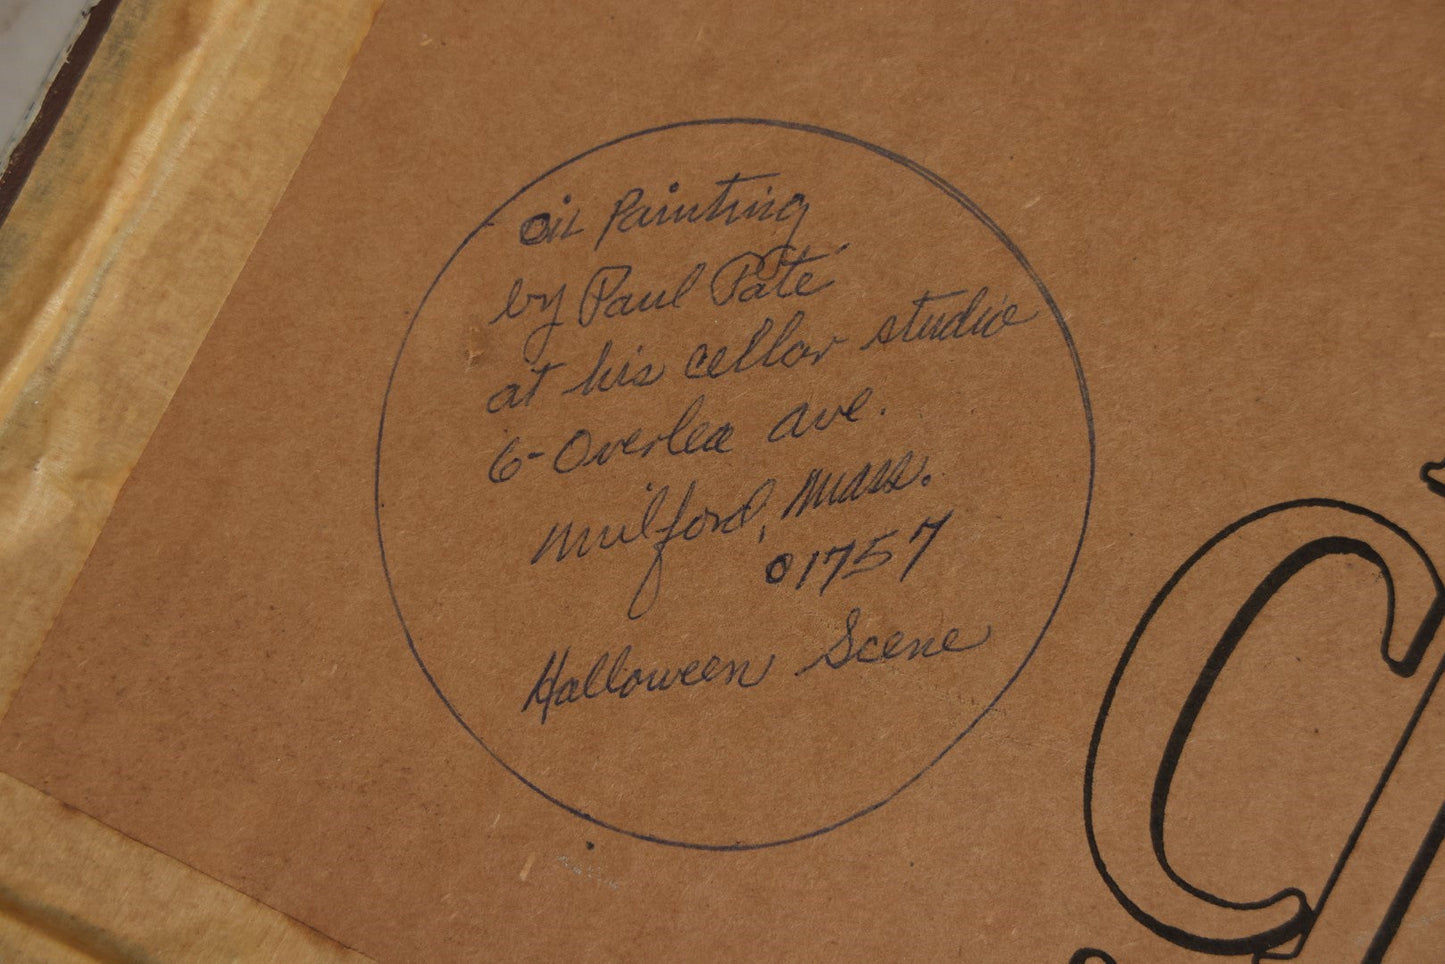 Oil Painting
by Paul Paté
at his cellar studio
6-Overlea Ave.
Milford, Mass.
01757
Halloween Scene